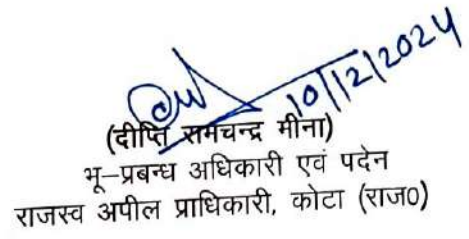 10/12/2024
(दीप्ति रामचन्द्र मीना)
भू-प्रबन्ध अधिकारी एवं पदेन
राजस्व अपील प्राधिकारी, कोटा (राज०)